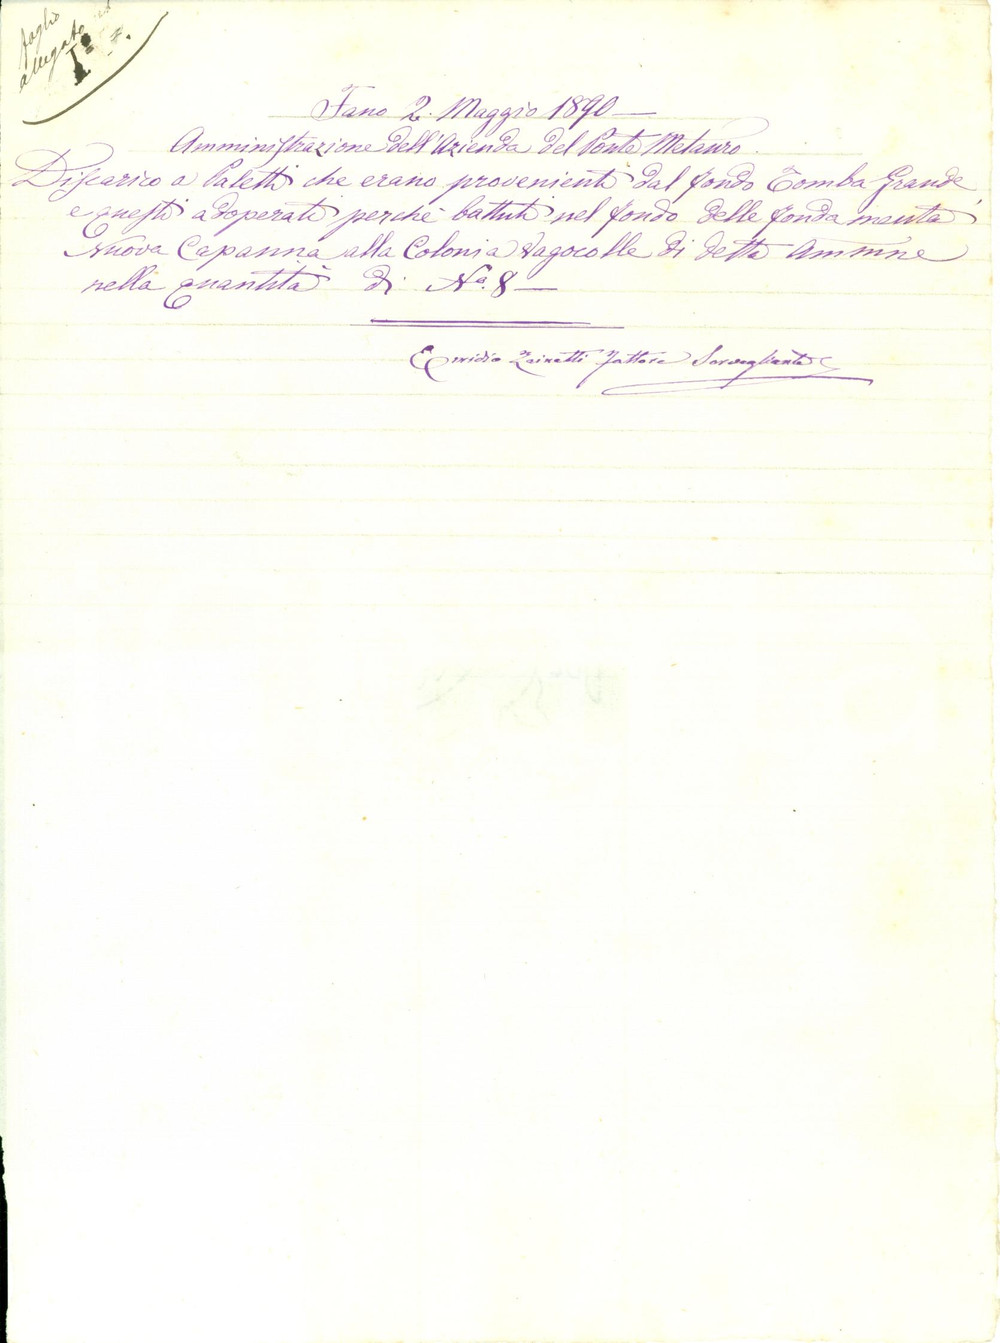 foglio
allegato
I°
Fano 2. Maggio 1890 —
Amministrazione dell'Azienda del Ponte Metauro.
Discarico a Paletti che erano provenienti dal fondo Tomba Grande,
e questi adoperati perchè battuti nel fondo delle fondamenta
Nuova Capanna alla Colonia Vagocolle di detta Ammne
nella quantità di No. 8 —
Emidio Zainetti Fattore Sorvegliante